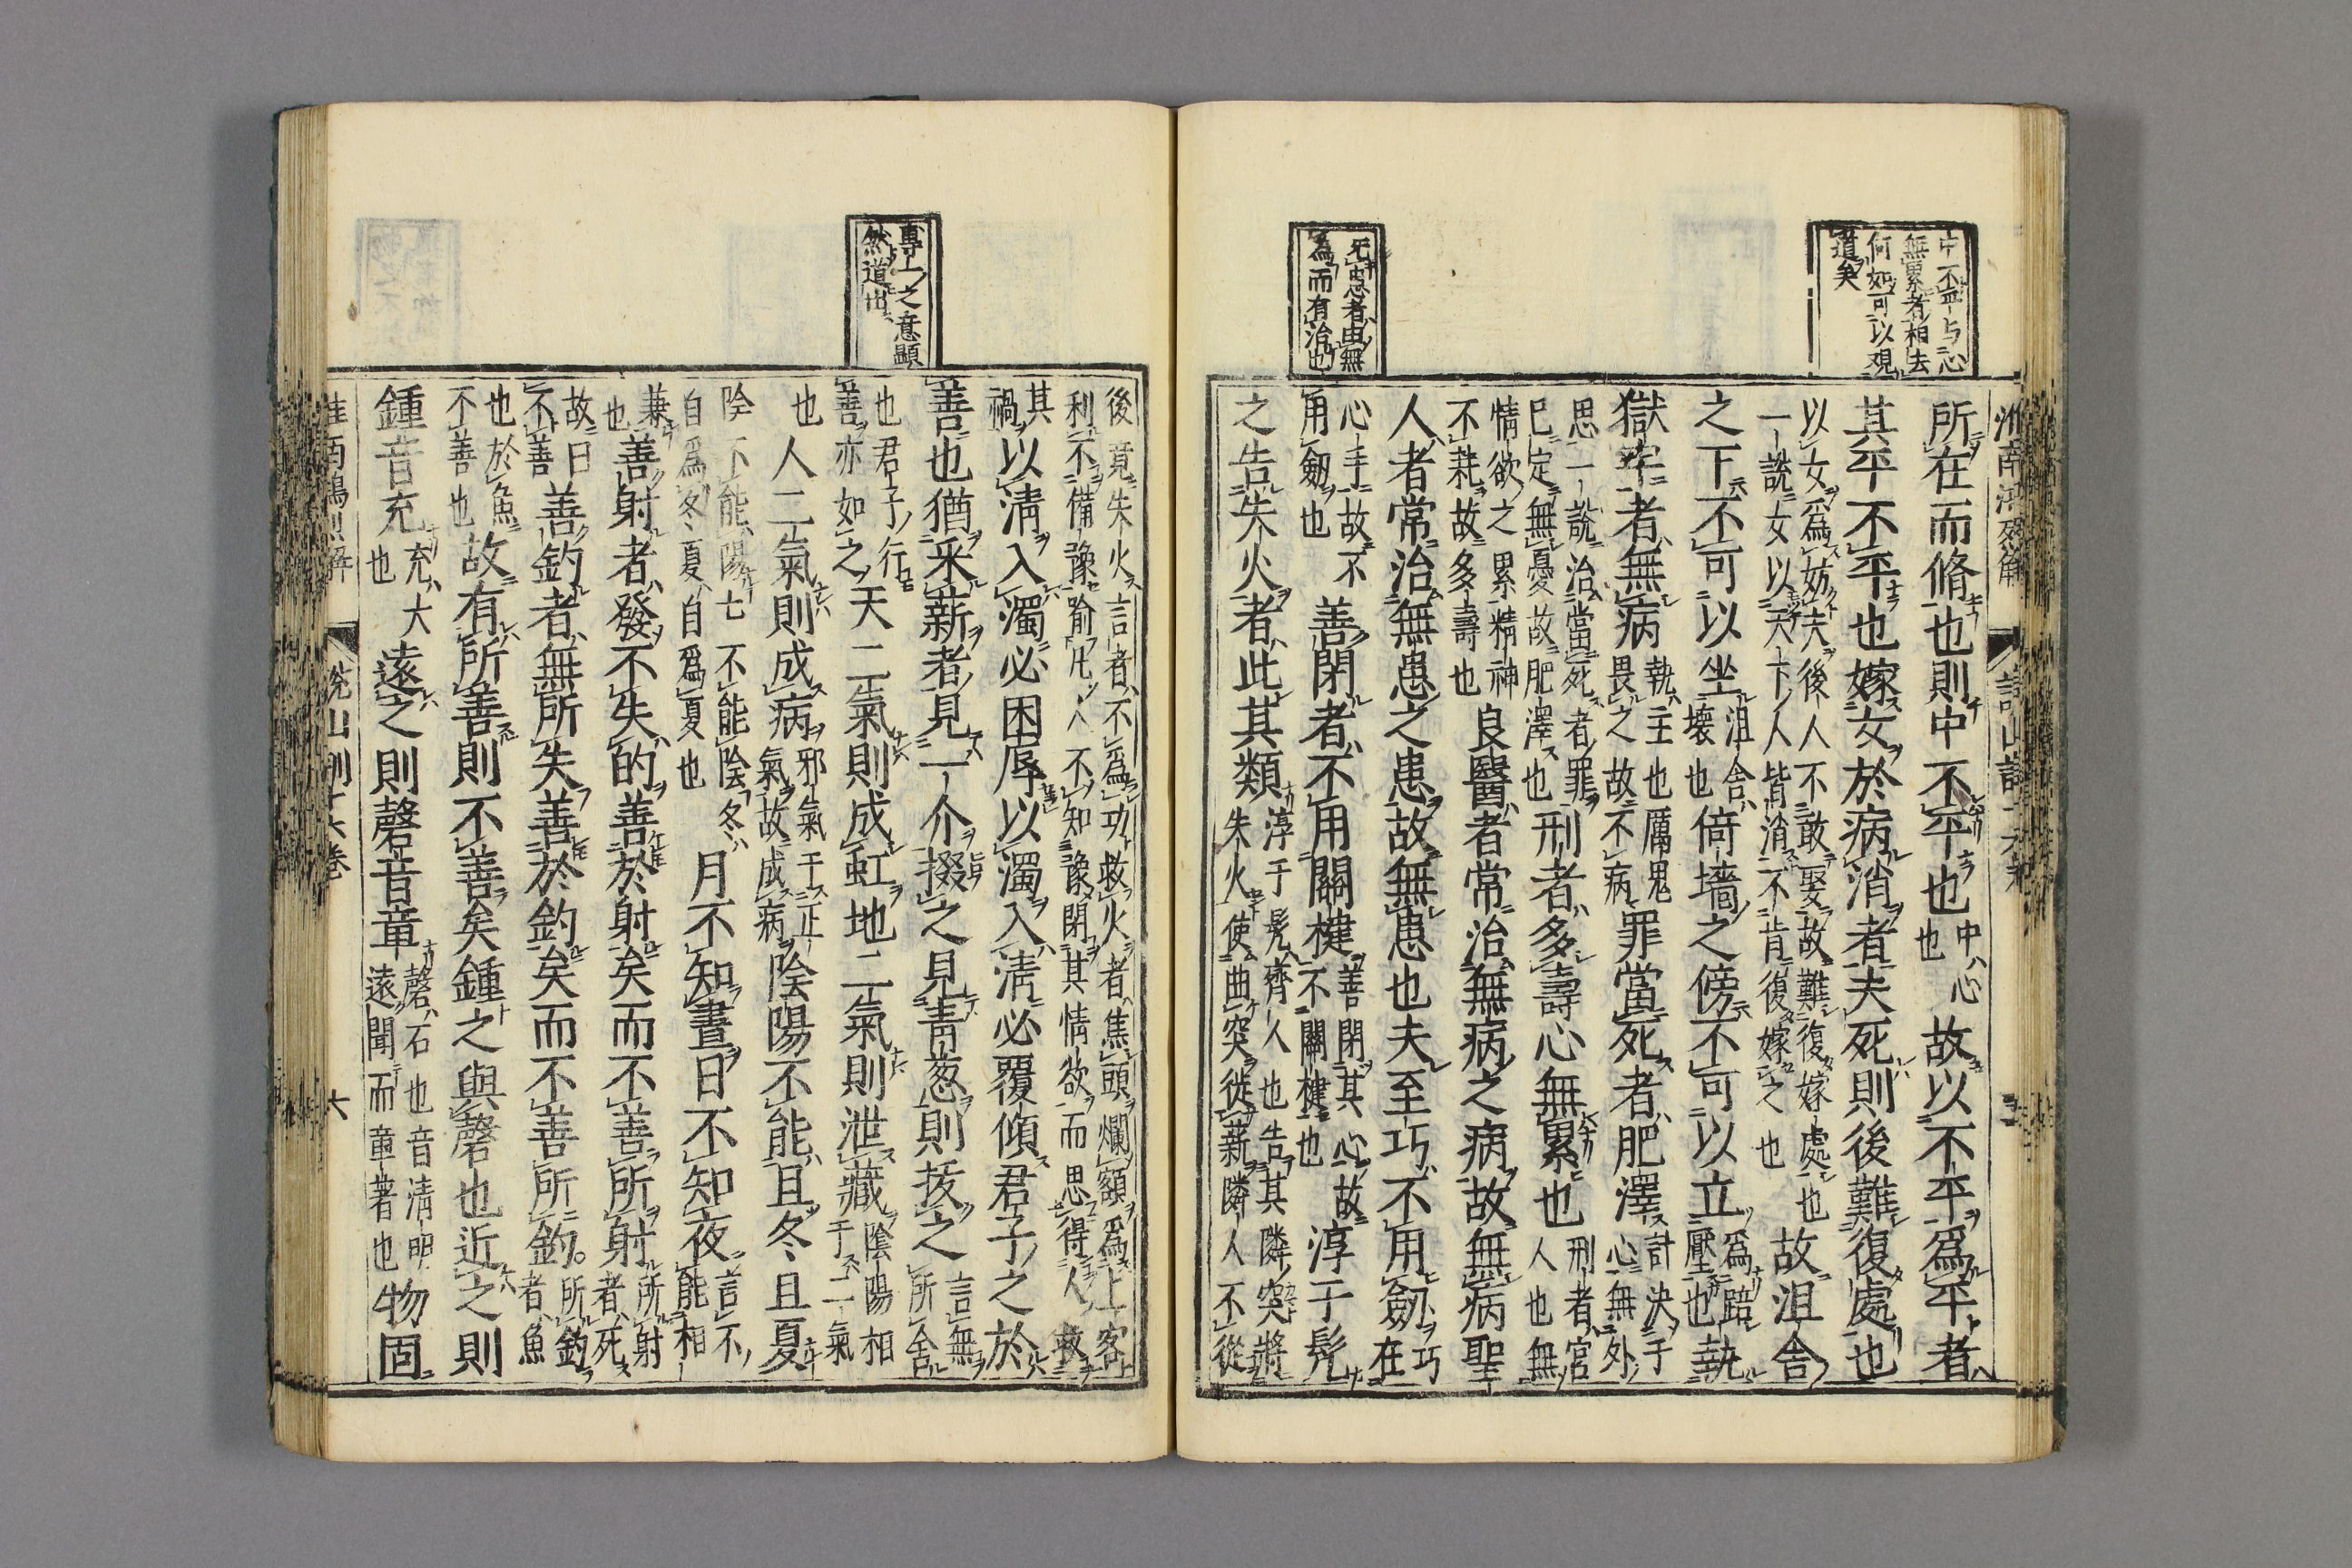 中不平与心
無累者相去
何如可以覌
道矣
无患者由無
為而有治也
所在而脩也則中不平也
中心
也
故以不平爲平者
其平不平也嫁女於病消者夫死則後難復處也
以女爲妨夫後人不敢娶故難復嫁處也
一說女以天下人皆消不肯復嫁之也
故沮舍
之下不可以坐
沮舍
壞也
倚墻之傍不可以立
爲踣
壓也
執
獄牢者無病
執主也厲鬼
畏之故不病
罪當死者肥澤
計決于
心無外
思一說治當死者罪
已定無憂故肥澤也
刑者多壽心無累也
刑者宮
人也無
情欲之累精神
不耗故多壽也
良醫者常治無病之病故無病聖
人者常治無患之患故無患也夫至巧不用劔
巧
在
心手故不
用劔也
善閉者不用關楗
善閉其心故
不關楗也
淳于髠
之告失火者此其類
淳于髠齊人也告其隣突將
失火使曲突徙薪隣人不從
專一之意顯
然道出
後竟失火言者不爲功救火者焦頭爛額爲上客
利不備豫喻凡人不知豫閉其情欲而思得人救
其
禍
以淸入濁必困辱以濁入淸必覆傾君子之於
善也猶采薪者見一介掇之見靑葱則拔之
言無
所舍
也君子行
善亦如之
天二氣則成虹地二氣則泄藏
陰陽相
于二氣
也
人二氣則成病
邪氣干正
氣故成病
陰陽不能且冬且夏
陰不能陽 不能陰冬
自爲冬夏自爲夏也
月不知晝日不知夜
言不
能相
兼
也
善射者發不失的善於射矣而不善所射
所射
者死
故曰
不善
善釣者無所失善於釣矣而不善所釣。
所釣
者魚
也於魚
不善也
故有所善則不善矣鍾之與磬也近之則
鍾音充
充大
也
遠之則磬音章
磬石也音淸明
遠聞而章著也
物固
六